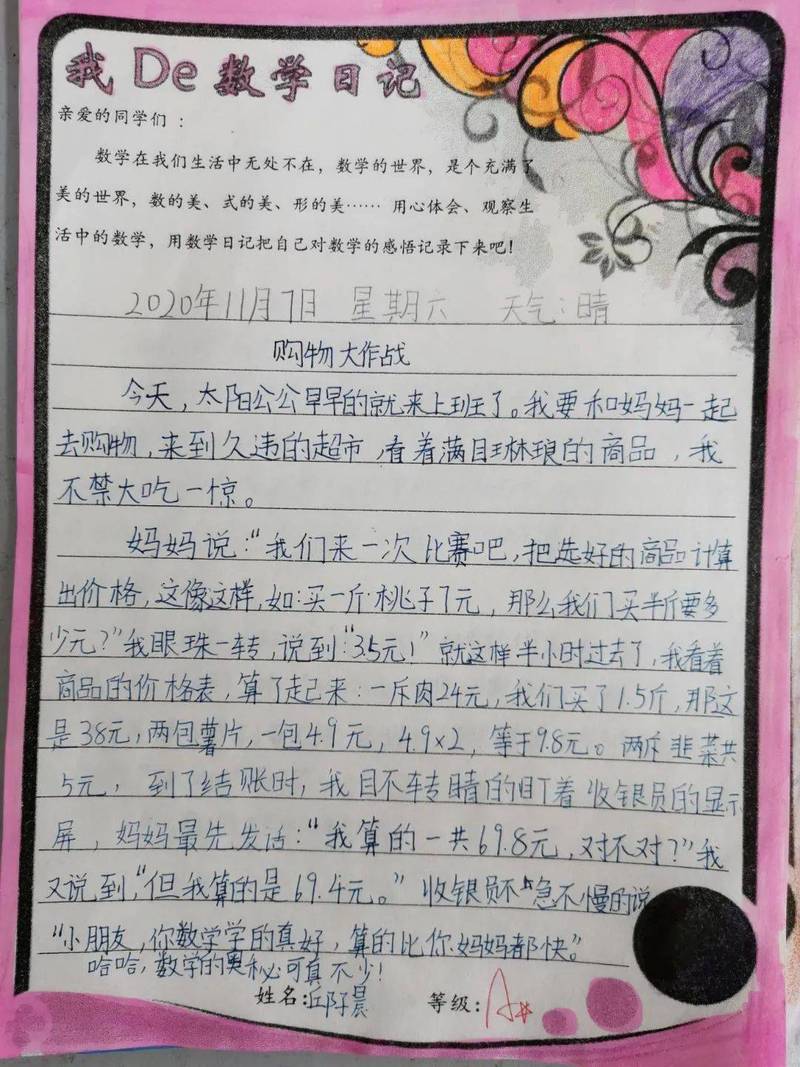 我De数学日记
亲爱的同学们：
数学在我们生活中无处不在，数学的世界，是个充满了
美的世界，数的美、式的美、形的美…… 用心体会、观察生
活中的数学，用数学日记把自己对数学的感悟记录下来吧！
2020年11月7日 星期六 天气：晴
购物大作战
今天，太阳公公早早的就来上班了。我要和妈妈一起
去购物，来到久违的超市，看着满目琳琅的商品，我
不禁大吃一惊。
妈妈说：“我们来一次比赛吧，把选好的商品计算
出价格，这像这样，如：买一斤桃子7元，那么我们买半斤要多
少元？”我眼珠一转，说到：“3.5元！”就这样半小时过去了，我看着
商品的价格表，算了起来：一斤肉24元，我们买了1.5斤，那这
是38元，两包薯片，一包4.9元，4.9×2，等于9.8元。两斤韭菜共
5元，到了结账时，我目不转睛的盯着收银员的显示
屏，妈妈最先发话：“我算的一共69.8元，对不对？”我
又说到，“但我算的是69.4元。”收银员不急不慢的说
“小朋友，你数学学的真好，算的比你妈妈都快。”
哈哈，数学的奥秘可真不少！
姓名：邱子晨 等级：A*